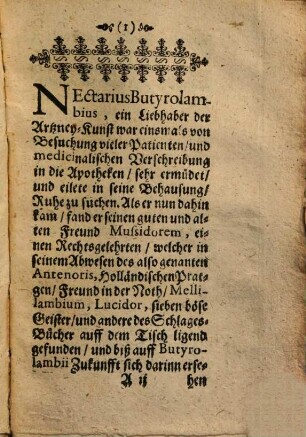 (1)
NEctarius Butyrolam-
bius, ein Liebhaber der
Artzney-Kunst war einsmals von
Besuchung vieler Patienten/und
medicinalischen Verschreibung
in die Apotheken/sehr ermüdet/
und eilete in seine Behausung/
Ruhe zu suchen. Als er nun dahin
kam/fand er seinen guten und al-
ten Freund Mussidorem, ei-
nen Rechtsgelehrten/welcher in
seinem Abwesen des also genanten
Antenoris, Holländischen Prat-
gen/Freund in der Noth/Melli-
lambium, Lucidor, sieben böse
Geister/und andere des Schlages
Bücher auff dem Tisch ligend
gefunden/und biß auff Butyro-
lambii Zukunfft sich darinn erse-
A ij hen